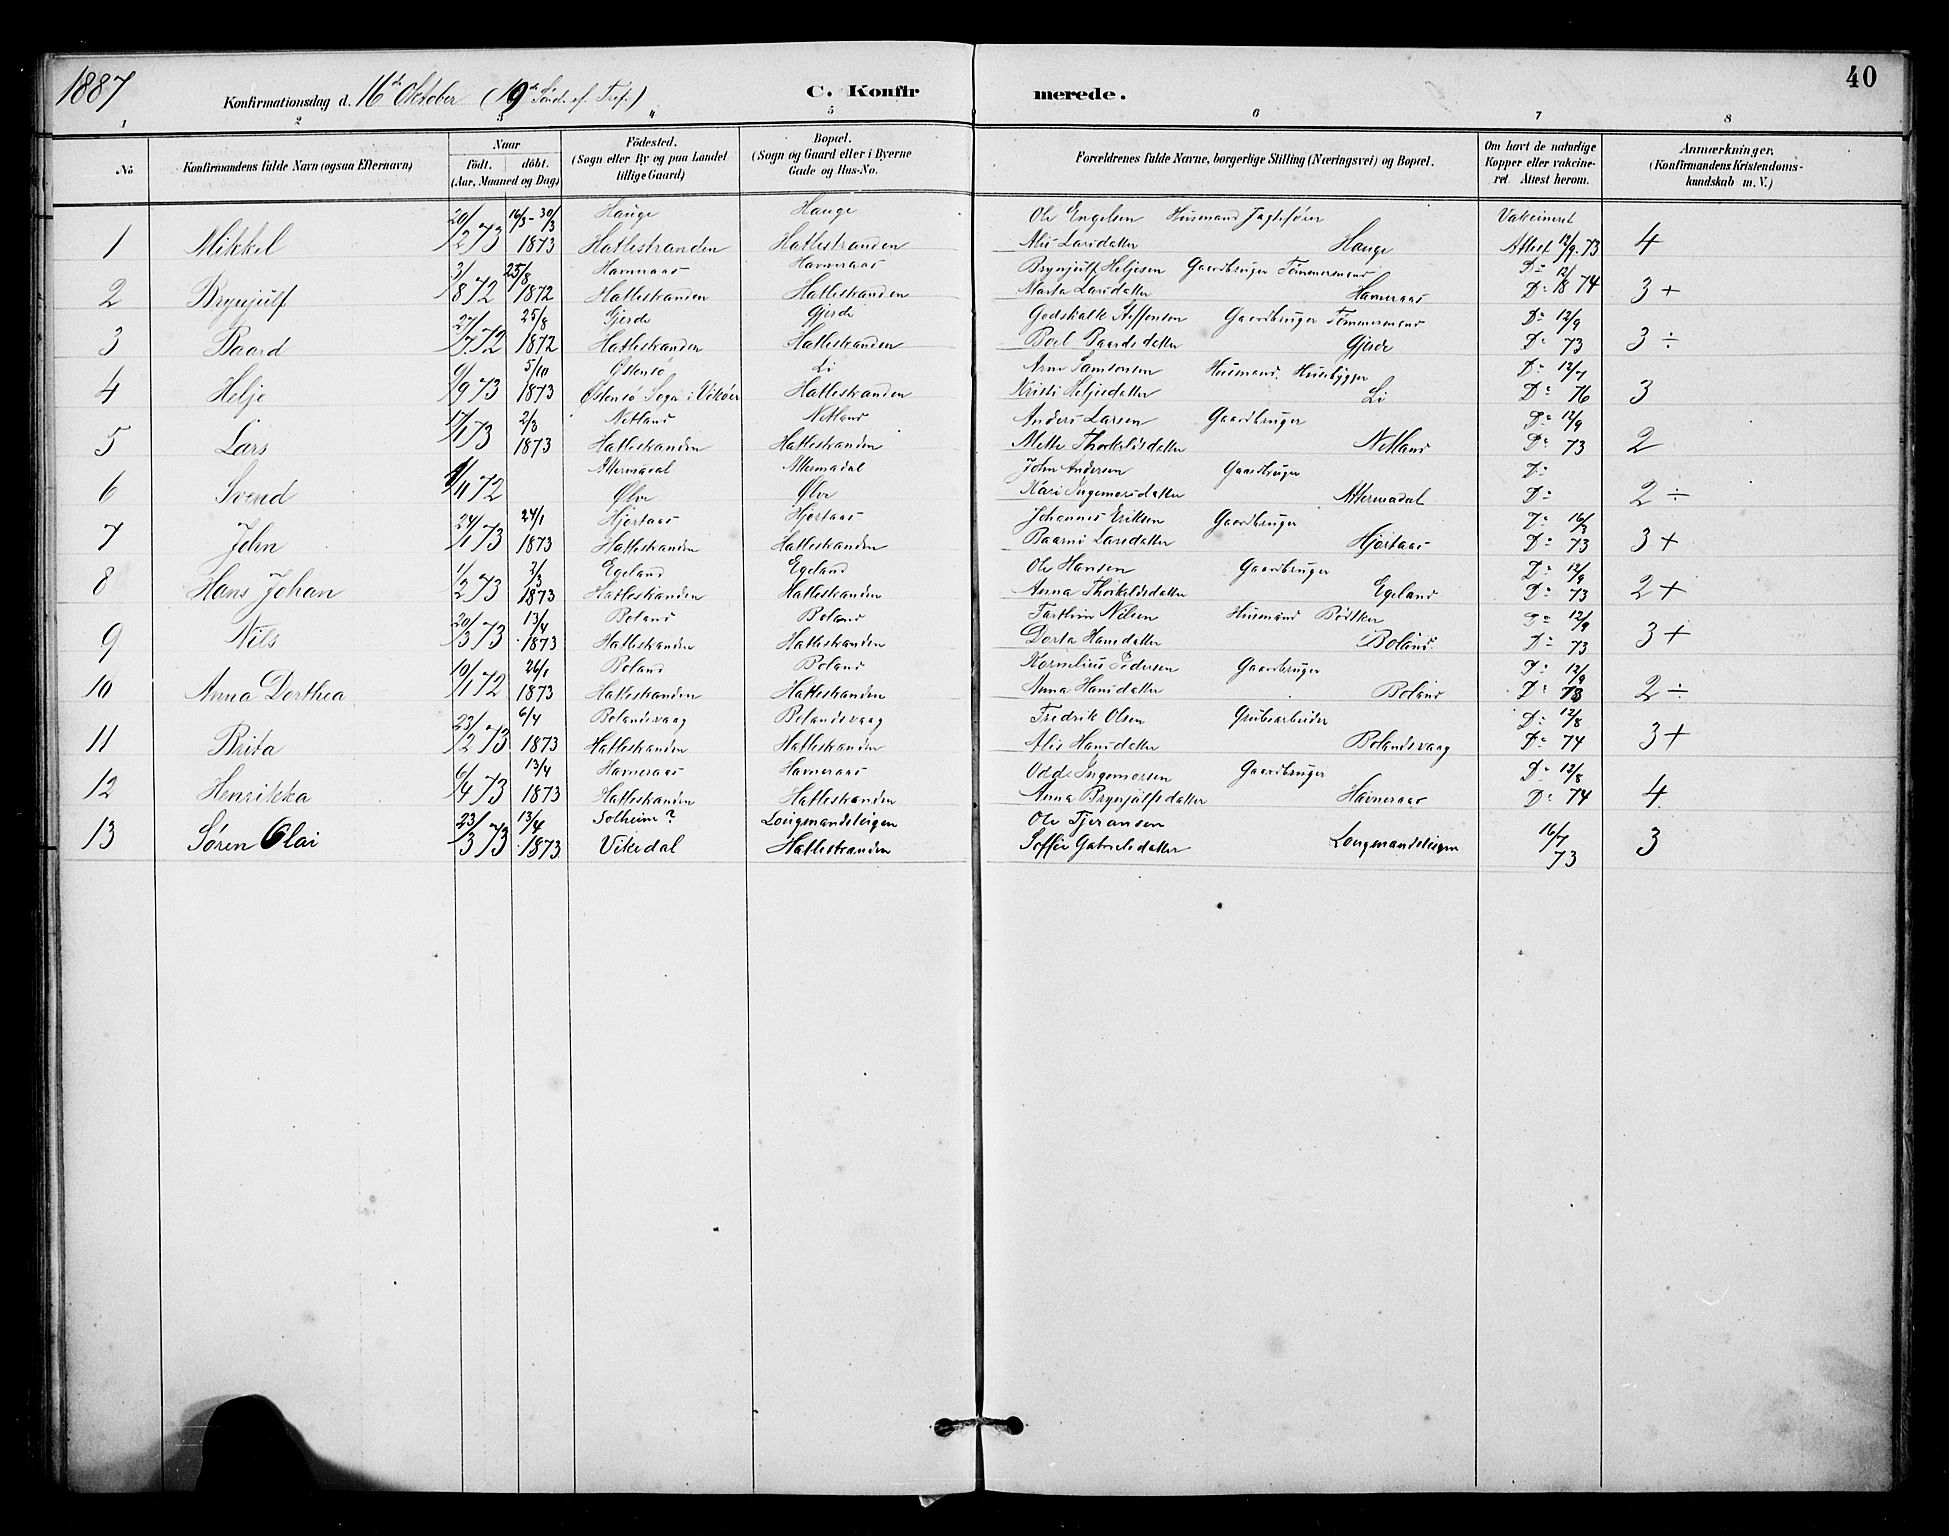 1887
Konfirmationsdag d. 16de Oktober (19de Sønd. ef. Tref.)
C. Konfirmerede.
40
1 2 3 4 5 6 7 8
No. Konfirmandens fulde Navn (ogsaa Efternavn) Naar født. døbt. (Aar, Maaned og Dag) Fødested. (Sogn eller By og paa Landet tillige Gaard) Bopæl. (Sogn og Gaard eller i Byerne Gade og Hus-No. Forældrenes fulde Navne, borgerlige Stilling (Næringsvei) og Bopæl. Om havt de naturlige Kopper eller vakcineret. Attest herom. Anmærkninger, (Konfirmandens Kristendomskundskab m. V.)
20/ 16/3 - 30/3 Hauge Hauge Ole Engelsen Husmand Jagtefører Vakcineret
1 Mikkel 2 73 1873 Hatlestranden Hatlestranden Alis Larsdatter Hauge Attest 12/9. 73 4
3/ 25/8 Havneraas Havneraas Brynjulf Heljesen Gaardbruger Tømmermand Do 12/
2 Brynjulf 8 72 1872 Hatlestranden Hatlestranden Marta Larsdatter Havneraas Do 18 74 3 +
27/ 25/8 Gjerde Gjerde Godskalk Steffensen Gaardbruger Tømmermand Do 12/9
3 Baard 7 72 1872 Hatlestranden Hatlestranden Boel Baardsdatter Gjerde Do 73 3 ÷
9/ 5/10 Østensø Li Arne Samsonsen Husmand. Husbygger Do 12/7
4 Helje 9 73 1873 Østensø Sogn i Vikør Hatlestranden Kristi Heljesdatter Li Do 76 3
17/ 2/3 Netland Netland Anders Larsen Gaardbruger Do 12/9
5 Lars 1 73 1873 Hatlestranden Hatlestranden Mette Thorkeldsdatter Netland Do 73 2
Attermadal Attermadal John Andersen Gaardbruger Do
6 Svend 11 72 Ølve Ølve Kari Ingemarsdatter Attermadal Do 2 ÷
24/ 24/1 Hjortaas Hjortaas Johannes Eriksen Gaardbruger Do 16/3
7 John 1 73 1873 Hatlestranden Hatlestranden Baarni Larsdatter Hjortaas Do 73 3 +
1/ 2/3 Egeland Egeland Ole Hansen Gaardbruger Do 12/9
8 Hans Johan 2 73 1873 Hatlestranden Hatlestranden Anna Thorkeldsdatter Egeland Do 73 2 +
20/ 13/4 Boland Boland Nilsen Husmand Bødtker Do 12/9
9 Nils 3 73 1873 Hatlestranden Hatlestranden Dorta Hansdatter Boland Do 73 3 +
10/ 26/1 Boland Boland Kornelius Pedersen Gaardbruger Do 12/9
10 Anna Dorthea 1 72 1873 Hatlestranden Hatlestranden Anna Hansdatter Boland Do 73 2 ÷
23/ 6/4 Bolandsvaag Bolandsvaag Fredrik Olsen Grubearbeider Do 12/8
11 Brita 2 73 1873 Hatlestranden Hatlestranden Alis Hansdatter Bolandsvaag Do 74 3 +
6/ 13/4 Havneraas Havneraas Odd Ingemarsen Gaardbruger Do 12/8
12 Henrikka 4 73 1873 Hatlestranden Hatlestranden Anna Brynjulfsdatter Havneraas Do 74 4
23/ 13/4 Solheim? Løugmandsteigen Ole Tjeransen 16/7
13 Søren Olai 3 73 1873 Vikedal Hatlestranden Soffie Gabrielsdatter Løugmandsteigen 73 3